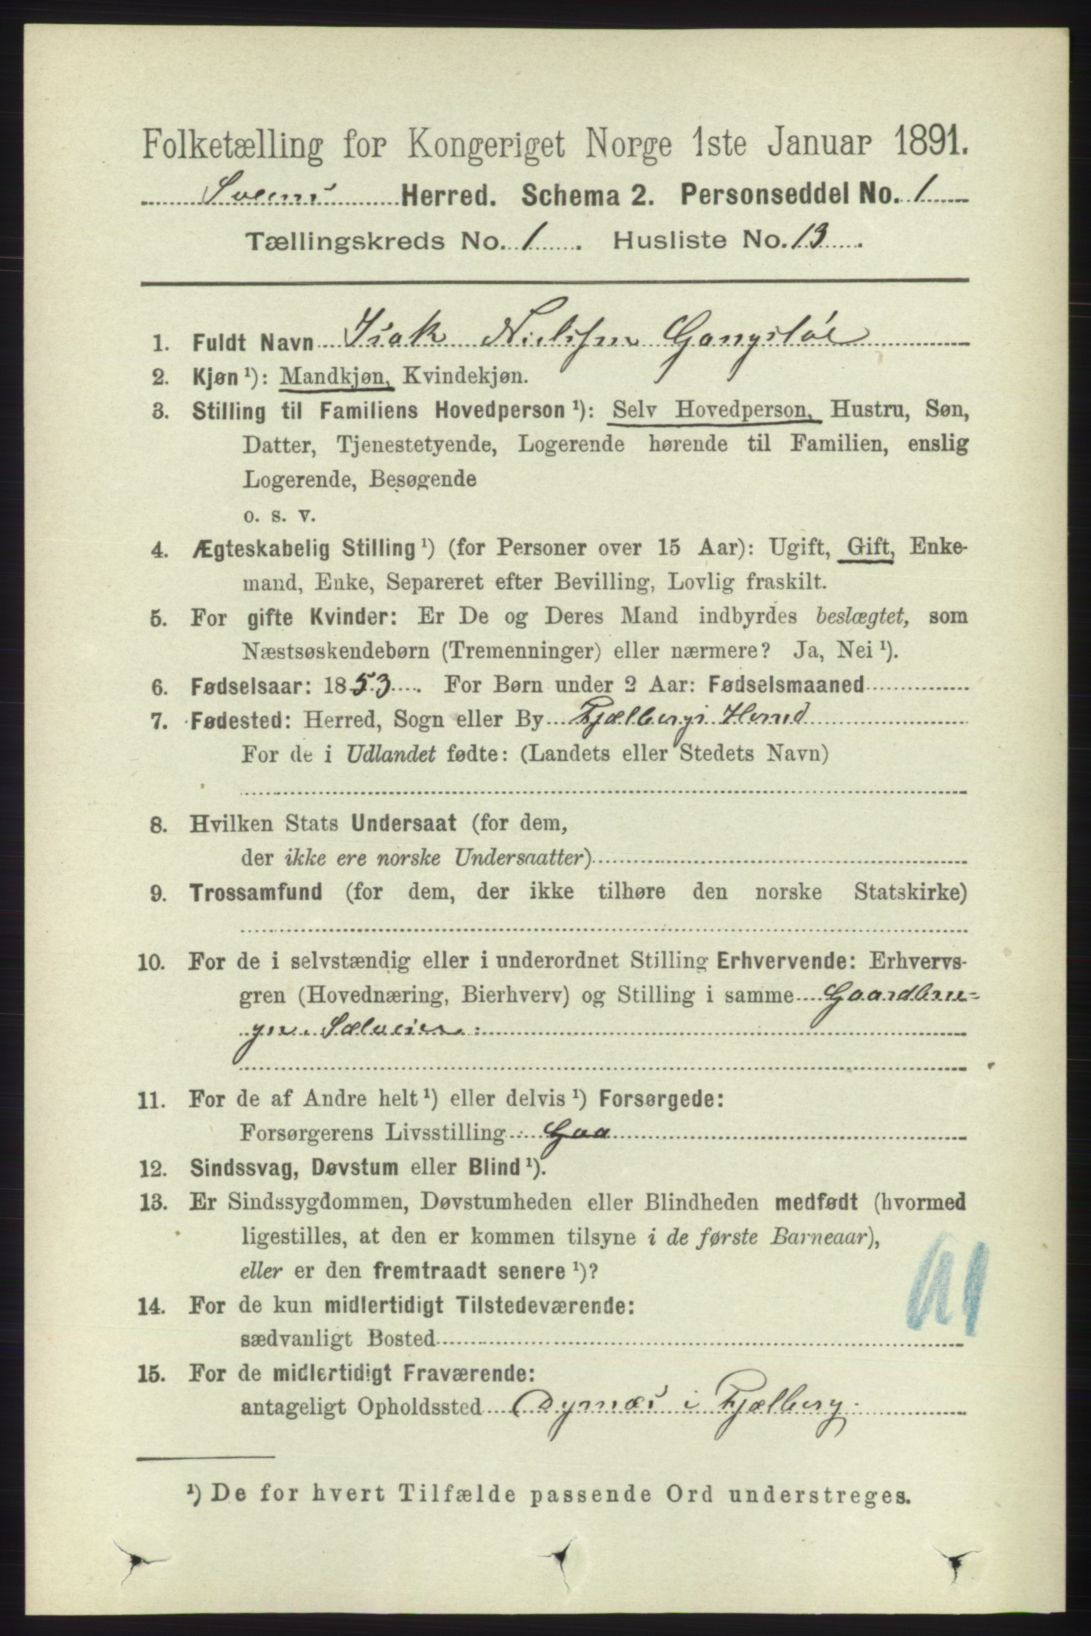 Folketælling for Kongeriget Norge 1ste Januar 1891.
Sveens Herred. Schema 2. Personseddel No. 1
Tællingskreds No. 1. Husliste No. 13.
1. Fuldt Navn Isak Nielssen Gangstøe
2. Kjøn ¹): Mandkjøn, Kvindekjøn.
3. Stilling til Familiens Hovedperson ¹): Selv Hovedperson, Hustru, Søn,
Datter, Tjenestetyende, Logerende hørende til Familien, enslig
Logerende, Besøgende
o. s. v.
4. Ægteskabelig Stilling ¹) (for Personer over 15 Aar): Ugift, Gift, Enke-
mand, Enke, Separeret efter Bevilling, Lovlig fraskilt.
5. For gifte Kvinder: Er De og Deres Mand indbyrdes beslægtet, som
Næstsøskendebørn (Tremenninger) eller nærmere? Ja, Nei ¹).
6. Fødselsaar: 1853. For Børn under 2 Aar: Fødselsmaaned
7. Fødested: Herred, Sogn eller By Fjælbergs Herred
For de i Udlandet fødte: (Landets eller Stedets Navn)
8. Hvilken Stats Undersaat (for dem,
der ikke ere norske Undersaatter)
9. Trossamfund (for dem, der ikke tilhøre den norske Statskirke)
10. For de i selvstændig eller i underordnet Stilling Erhvervende: Erhvervs-
gren (Hovednæring, Bierhverv) og Stilling i samme Gaardbru=
ger. Selveier.
11. For de af Andre helt ¹) eller delvis ¹) Forsørgede:
Forsørgerens Livsstilling Gaa
12. Sindssvag, Døvstum eller Blind ¹).
13. Er Sindssygdommen, Døvstumheden eller Blindheden medfødt (hvormed
ligestilles, at den er kommen tilsyne i de første Barneaar),
eller er den fremtraadt senere ¹)?
14. For de kun midlertidigt Tilstedeværende:
sædvanligt Bosted
15. For de midlertidigt Fraværende:
antageligt Opholdssted i Fjælberg.
¹) De for hvert Tilfælde passende Ord understreges.